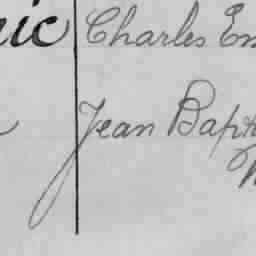 Charles Em
Jean Bapt